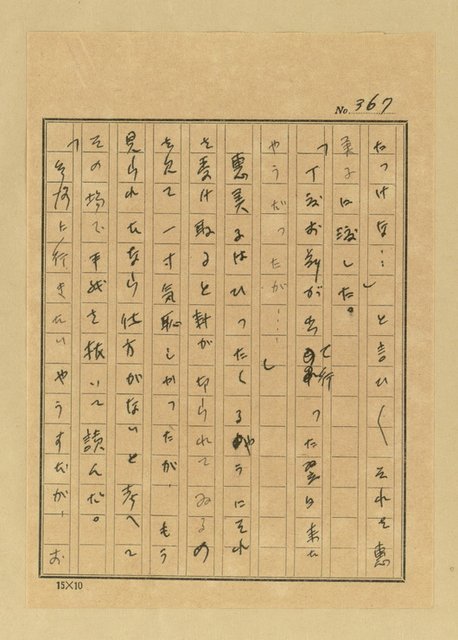 No. 367
たつけな…」と言ひ〱それを惠
美子は渡した。
「丁度お前が出て行つた翌日来た
やうだつたが……」
惠美子はひつたくるやうにそれ
を受け取ると封が切られてゐるの
を見て一寸気恥しかつたが、もう
見られたなら仕方がないと考へて
その場で手紙を抜いて読んだ。
「行きたいやうすだが、お
15×10